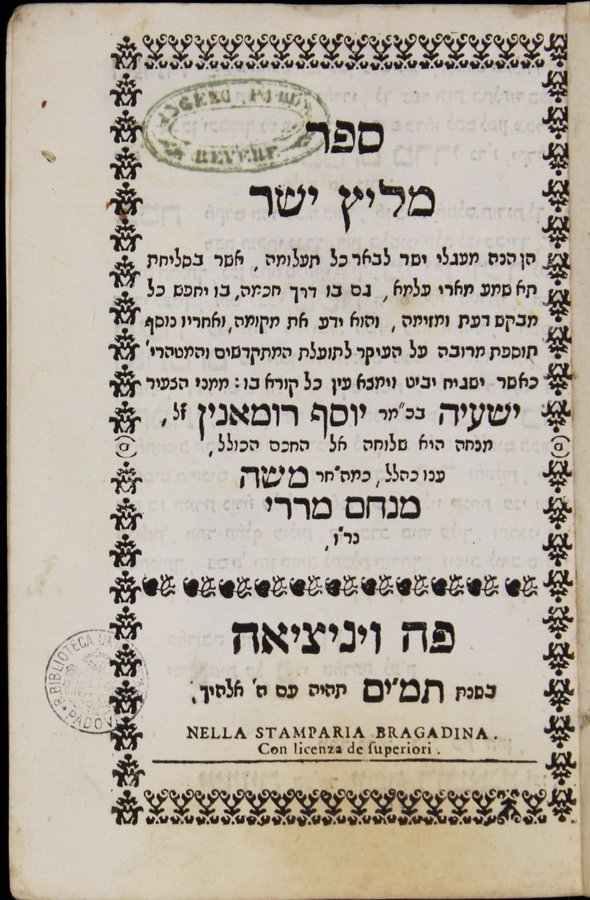 ספר
מליץ ישר
הן הנה מעגלי יושר לבאר כל תעלומה, אשר בסליחת
תא שמע מארי עלמא, גם בו דרך חכמה, בו יחפש כל
מבקש דעת ומזימה, והוא ידע את מקומה, ואחריו נוסף
תוספת מרובה על העיקר לתועלת המתקדשים והמטהרי'
כאשר ישגיח יביט וימצא עין כל קורא בו: ממני הצעיר
ישעיה בכ"מר יוסף רומאנין זל,
מנחה היא שלוחה אל החכם הכולל,
ענו כהלל, כמה"חר משה
מנחם מררי
נר"ו,
פה ויניציאה
בשנת תמ"ים תהיה עם ה' אלהיך.
NELLA STAMPARIA BRAGADINA.
Con licenza de superiori.
REVERE
BIBLIOTECA
PADOVA